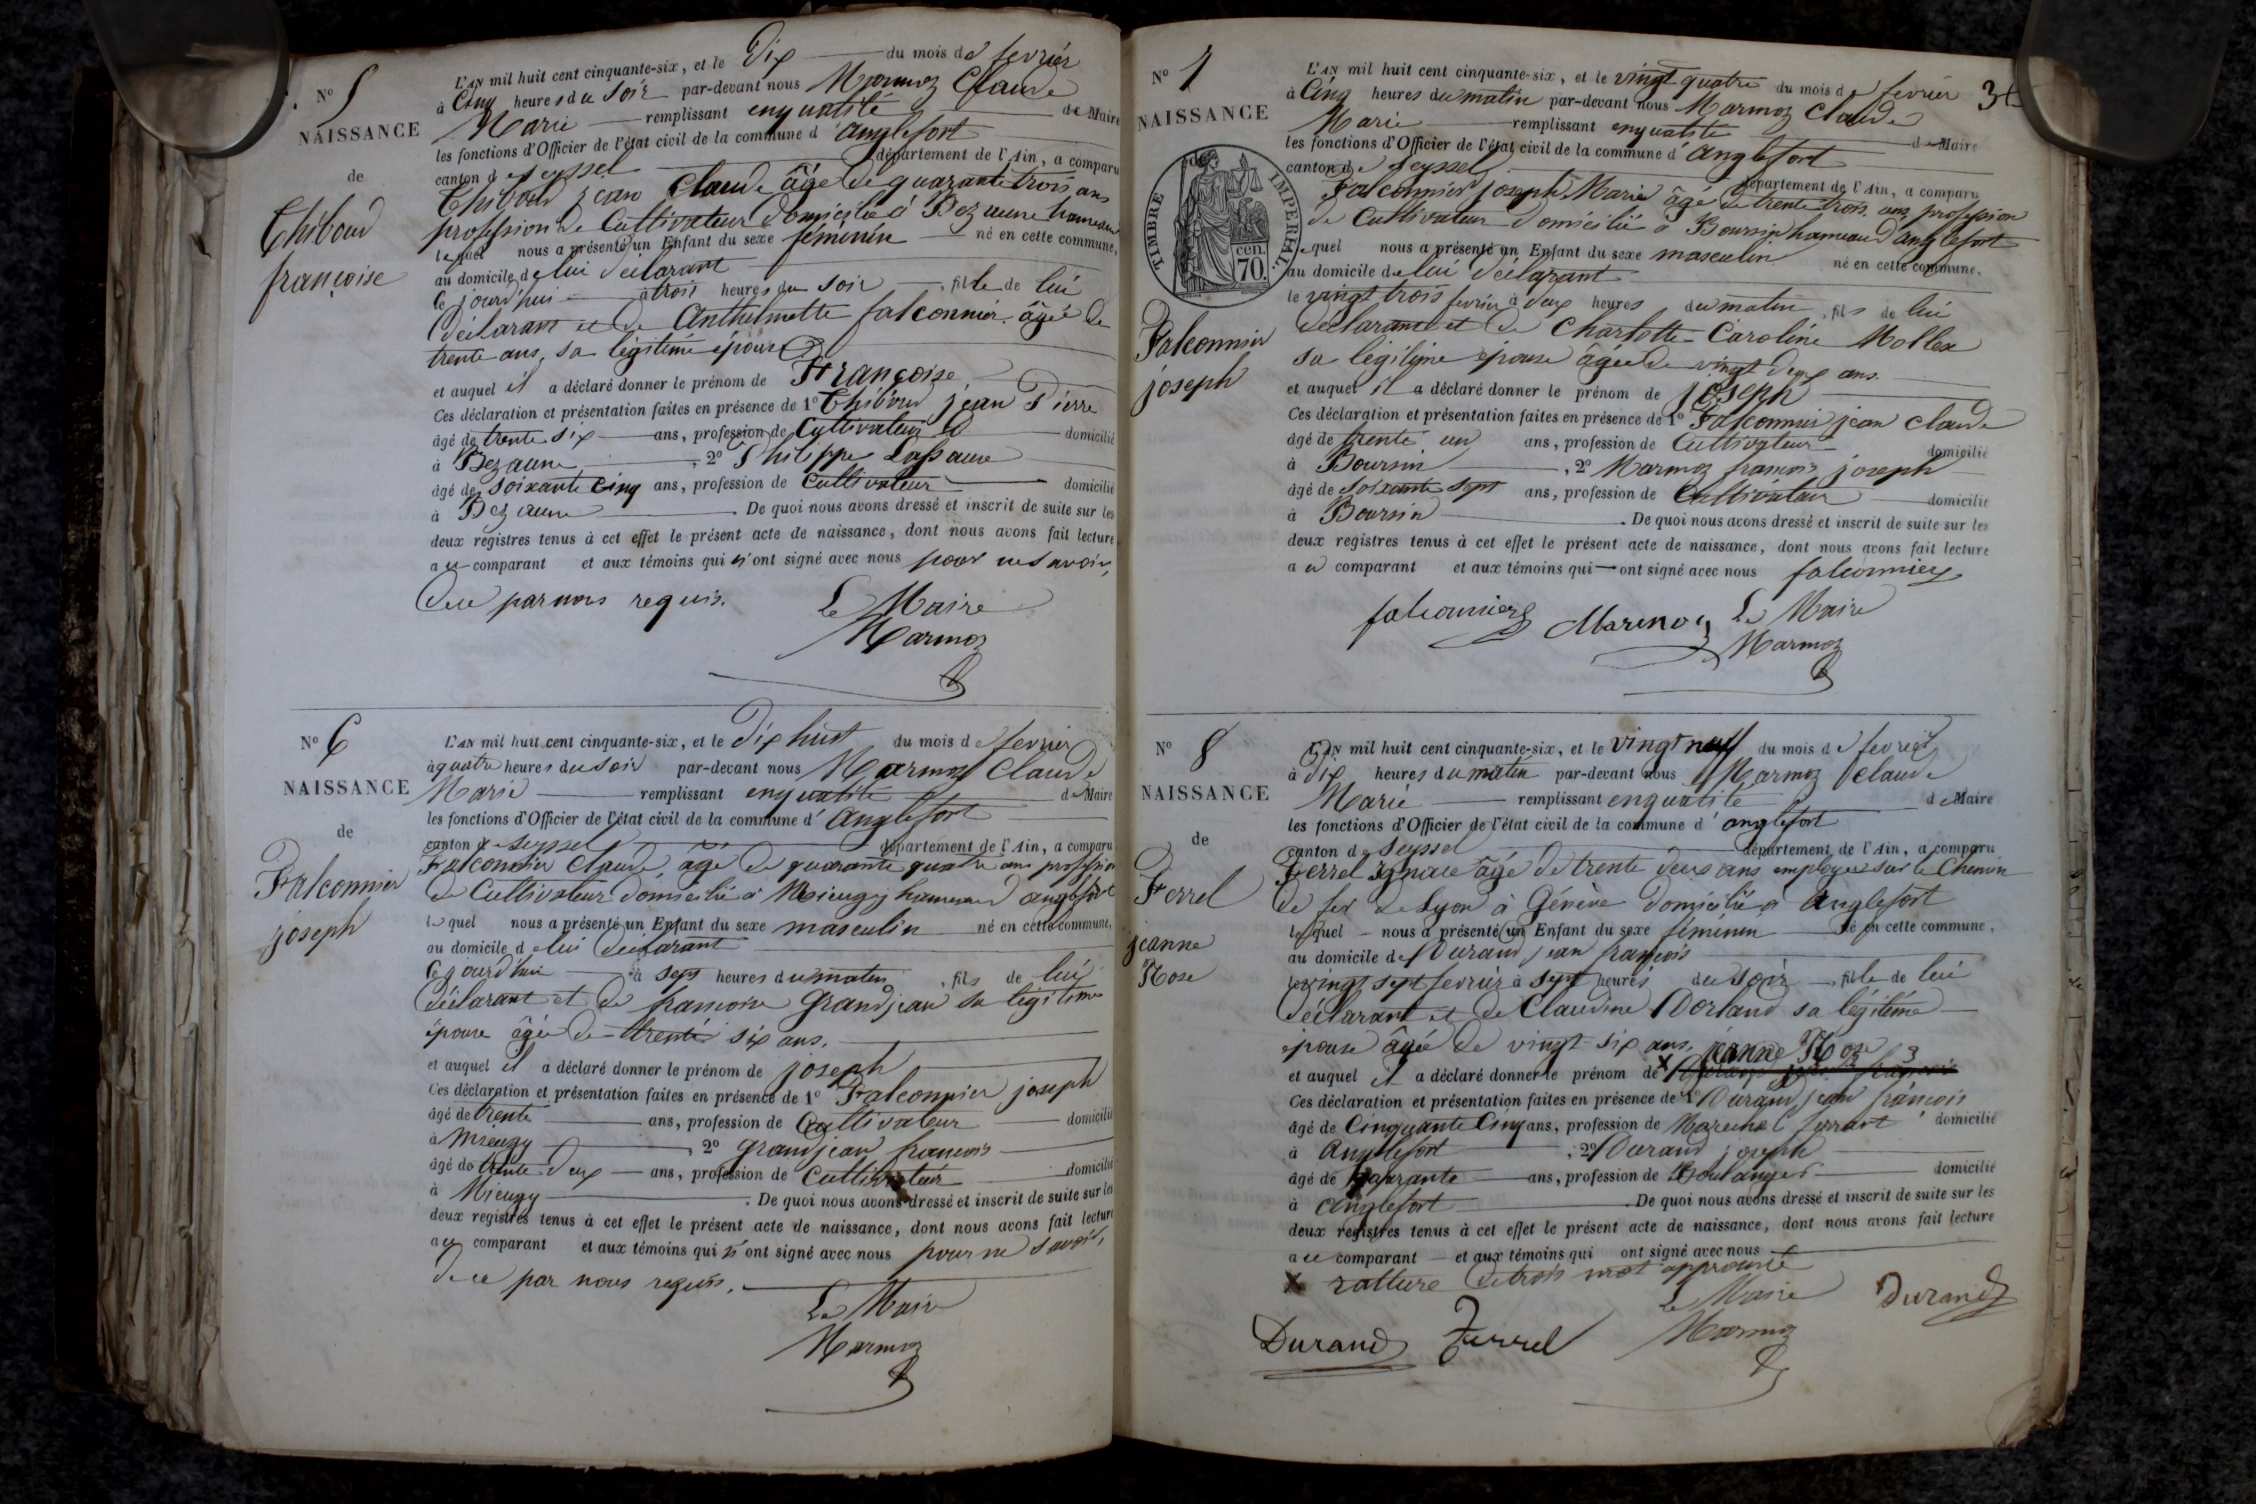 N° 5
NAISSANCE
de
Thiboud
françoise
L'AN mil huit cent cinquante-six, et le Dix du mois de fevrier
à Cinq heures du Soir par-devant nous Marmoz Claude
Marie remplissant en qualité de Maire
les fonctions d'Officier de l'état civil de la commune d'anglefort
canton de Seyssel département de l'Ain, a comparu
Thiboud jean Claude âgé de quarante trois ans
profession de Cultivateur domicilié à Bezaune hameau
lequel nous a présenté un Enfant du sexe féminin né en cette commune,
au domicile de lui déclarant
Ce jourd'hui à trois heures du soir, fille de lui
déclarant et de Anthelmette falconnier âgée de
trente ans, sa légitime épouse
et auquel il a déclaré donner le prénom de Françoise
Ces déclaration et présentation faites en présence de 1° Thiboud jean Pierre
âgé de trente six ans, profession de Cultivateur domicilié
à Bezaune, 2° Philippe Lassauce
âgé de soixante cinq ans, profession de Cultivateur domicilié
à Bezaune. De quoi nous avons dressé et inscrit de suite sur les
deux registres tenus à cet effet le présent acte de naissance, dont nous avons fait lecture
au comparant et aux témoins qui n'ont signé avec nous pour ne savoir,
de ce par nous requis.
Le Maire
Marmoz
N° 6
NAISSANCE
de
Falconnier
joseph
L'AN mil huit cent cinquante-six, et le Dix huit du mois de fevrier
à quatre heures du soir par-devant nous Marmoz Claude
Marie remplissant en qualité de Maire
les fonctions d'Officier de l'état civil de la commune d'Anglefort
canton de Seyssel département de l'Ain, a comparu
Falconnier Claude âgé de quarante quatre ans profession
de Cultivateur domicilié à Mieugy hameau d'anglefort
lequel nous a présenté un Enfant du sexe masculin né en cette commune,
au domicile de lui déclarant
Ce jourd'hui à sept heures du matin, fils de lui
déclarant et de francoise Grandjean sa légitime
épouse âgée de trente six ans.
et auquel il a déclaré donner le prénom de joseph
Ces déclaration et présentation faites en présence de 1° Falconnier joseph
âgé de trente ans, profession de Cultivateur domicilié
à Mieugy, 2° Grandjean francois
âgé de trente deux ans, profession de Cultivateur domicilié
à Mieugy. De quoi nous avons dressé et inscrit de suite sur les
deux registres tenus à cet effet le présent acte de naissance, dont nous avons fait lecture
au comparant et aux témoins qui n'ont signé avec nous pour ne savoir,
de ce par nous requis.
Le Maire
Marmoz
N° 7
NAISSANCE
TIMBRE IMPERIAL.
70 cen.
Falconnier
joseph
L'AN mil huit cent cinquante-six, et le vingt quatre du mois de fevrier
à Cinq heures du matin par-devant nous Marmoz Claude
Marie remplissant en qualité de Maire
les fonctions d'Officier de l'état civil de la commune d'anglefort
canton de Seyssel département de l'Ain, a comparu
Falconnier joseph Marie âgé de trente trois ans profession
de Cultivateur domicilié à Boursin hameau d'anglefort
lequel nous a présenté un Enfant du sexe masculin né en cette commune,
au domicile de lui déclarant
le vingt trois fevrier à deux heures du matin, fils de lui
déclarant et de Charlotte Caroline Mollex
sa légitime épouse âgée de vingt deux ans.
et auquel il a déclaré donner le prénom de joseph
Ces déclaration et présentation faites en présence de 1° Falconnier jean claude
âgé de trente un ans, profession de Cultivateur domicilié
à Boursin, 2° Marmoz francois joseph
âgé de soixante sept ans, profession de Cultivateur domicilié
à Boursin. De quoi nous avons dressé et inscrit de suite sur les
deux registres tenus à cet effet le présent acte de naissance, dont nous avons fait lecture
au comparant et aux témoins qui ont signé avec nous falconnier
falconnier Marmoz Le Maire
Marmoz
N° 8
NAISSANCE
de
Ferrel
jeanne
Rose
L'AN mil huit cent cinquante-six, et le vingt neuf du mois de fevrier
à Dix heures du matin par-devant nous Marmoz Claude
Marie remplissant en qualité de Maire
les fonctions d'Officier de l'état civil de la commune d'anglefort
canton de Seyssel département de l'Ain, a comparu
Ferrel Ignace âgé de trente deux ans employé sur le Chemin
de fer de Lyon à Génève domicilié à Anglefort
lequel nous a présenté un Enfant du sexe féminin né en cette commune,
au domicile de Durand jean françois
le vingt sept fevrier à sept heures du soir, fille de lui
déclarant et de Claudine Dorland sa légitime
épouse âgée de vingt six ans. jeanne Rose
et auquel il a déclaré donner le prénom de x
Ces déclaration et présentation faites en présence de 1° Durand jean françois
âgé de Cinquante Cinq ans, profession de Marechal ferrant domicilié
à Anglefort, 2° Durand joseph
âgé de quarante ans, profession de Boulanger domicilié
à Anglefort. De quoi nous avons dressé et inscrit de suite sur les
deux registres tenus à cet effet le présent acte de naissance, dont nous avons fait lecture
au comparant et aux témoins qui ont signé avec nous
x rature de trois mot approuvé
Le Maire Durand
Durand Ferrel Marmoz